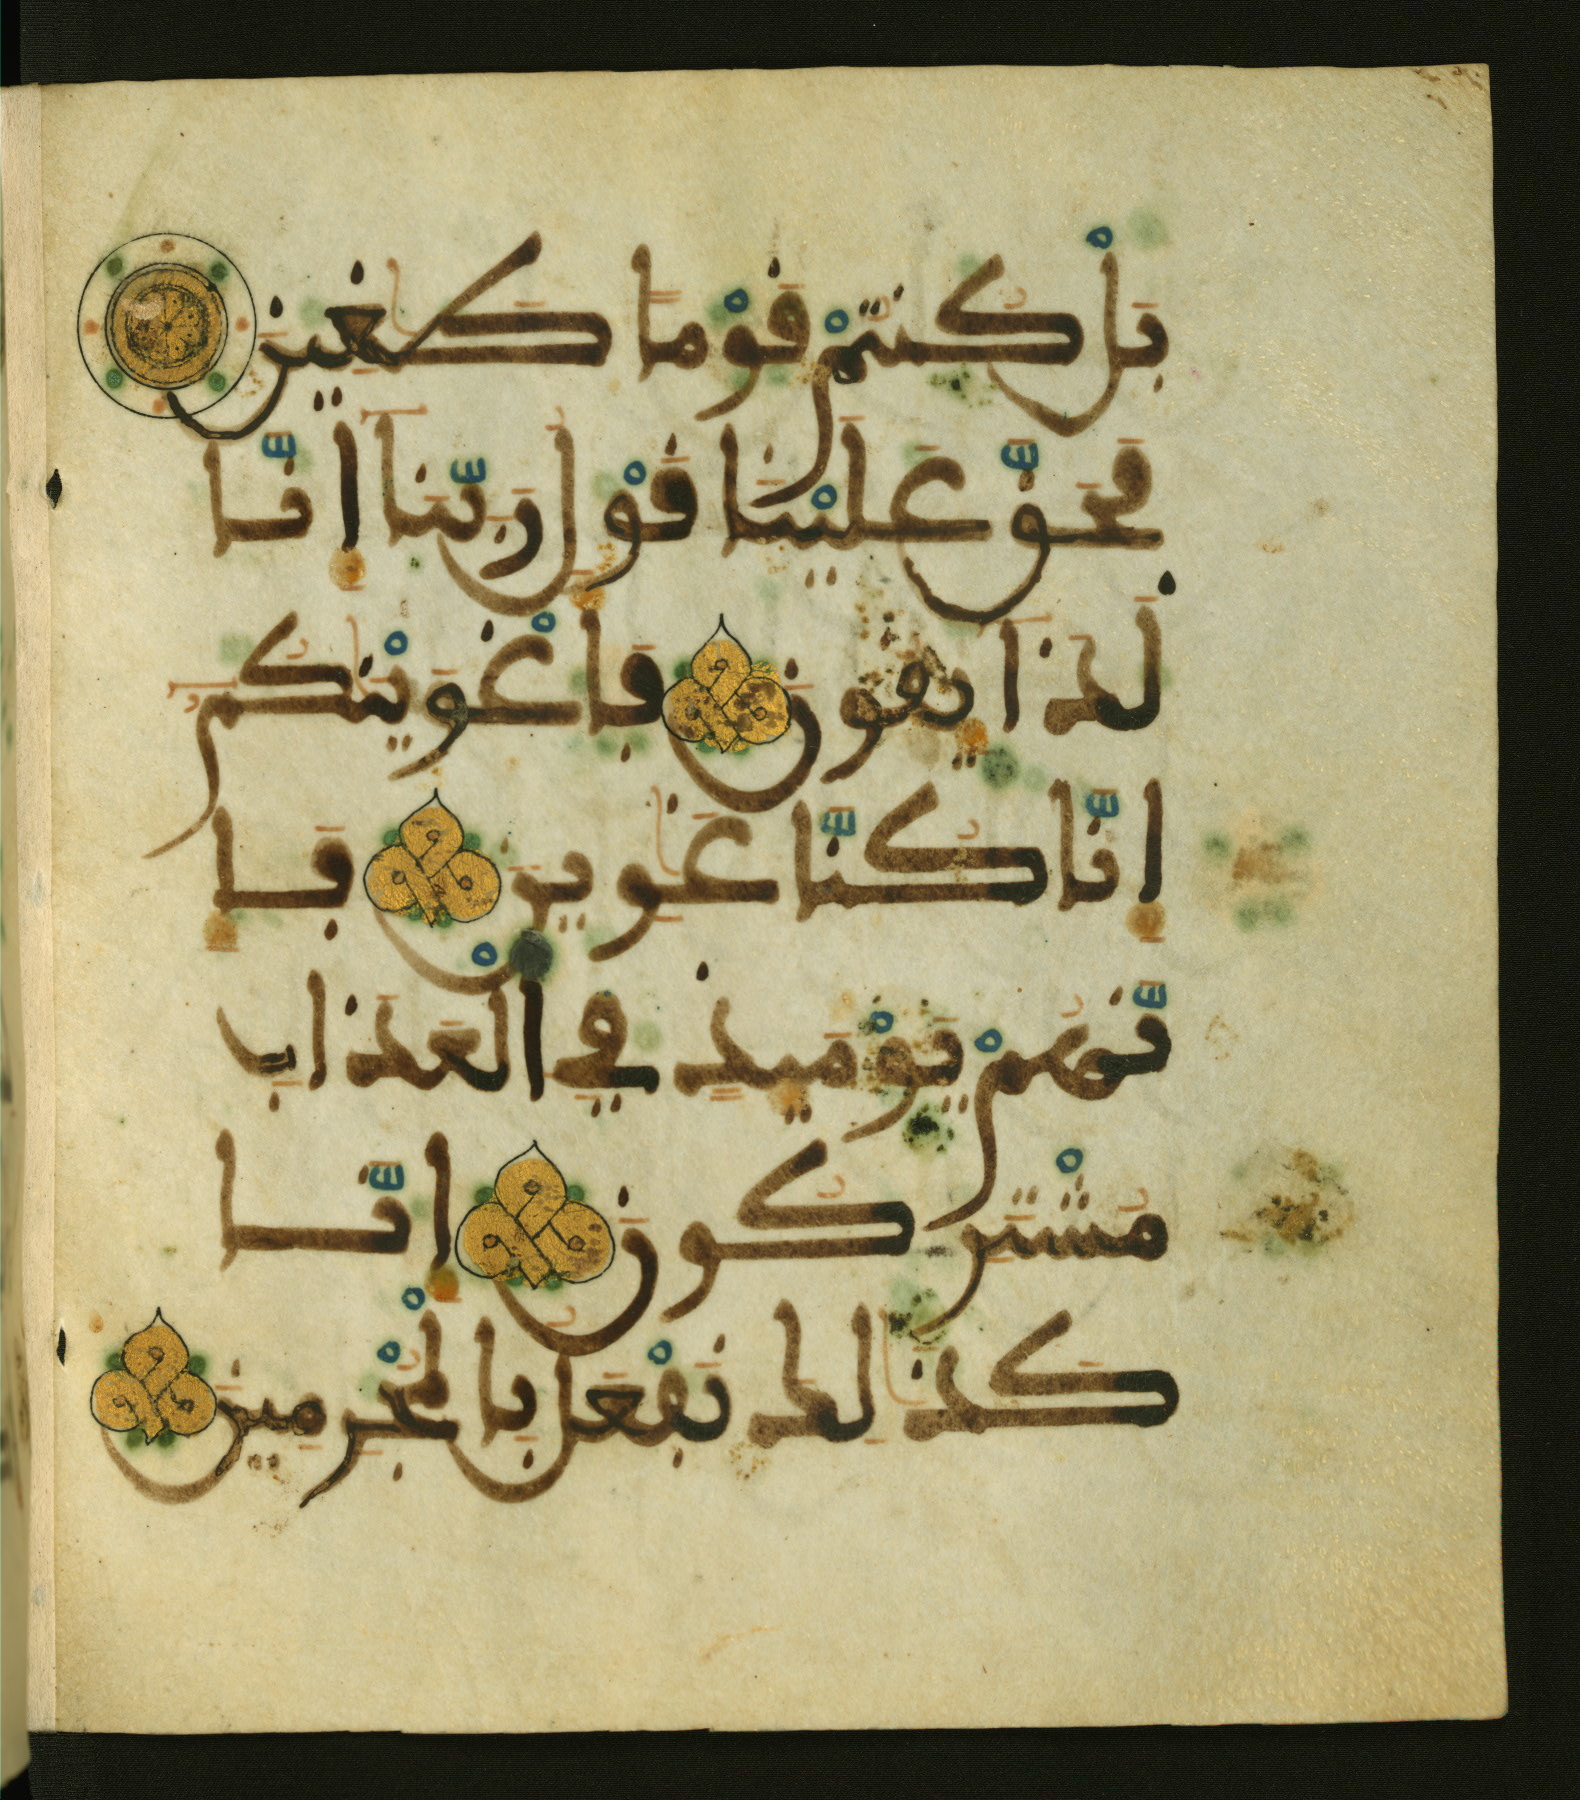 بَلْ كُنتُمْ قَوْمًا طَٰغِينَ
فَحَقَّ عَلَيْنَا قَوْلُ رَبِّنَا إِنَّا
لَذَآئِقُونَ فَأَغْوَيْنَٰكُمُۥٓ
إِنَّا كُنَّا غَٰوِينَ فَإِ
نَّهُمْ يَوْمَئِذٍ فِي الْعَذَابِ
مُشْتَرِكُونَ إِنَّا
كَذَٰلِكَ نَفْعَلُ بِالْمُجْرِمِينَ